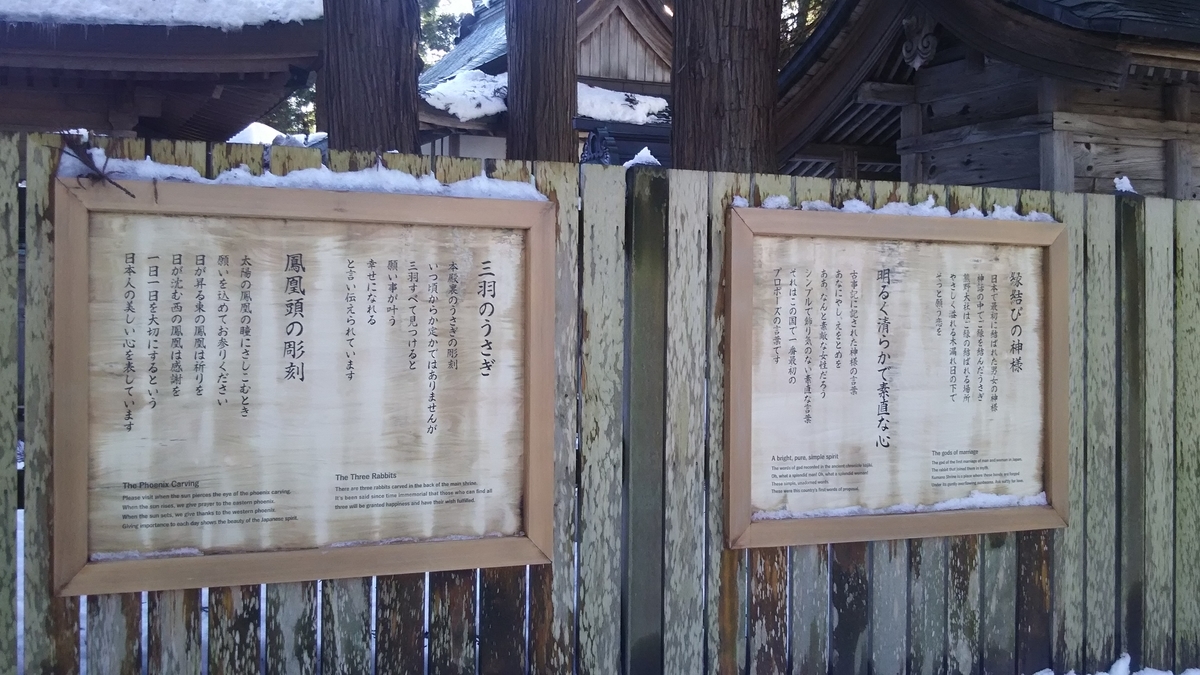 三羽のうさぎ
本殿裏のうさぎの彫刻
いつ頃からか定かではありませんが
三羽すべて見つけると
願い事が叶う
幸せになれる
と言い伝えられています
鳳凰頭の彫刻
太陽の鳳凰の瞳にさしこむとき
願いを込めてお参りください
日が昇る東の鳳凰は祈りを
日が沈む西の鳳凰は感謝を
一日一日を大切にするという
日本人の美しい心を表しています
The Phoenix Carving
Please visit when the sun pierces the eye of the phoenix carving.
When the sun rises, we give prayer to the eastern phoenix.
When the sun sets, we give thanks to the western phoenix.
Giving importance to each day shows the beauty of the Japanese spirit.
The Three Rabbits
There are three rabbits carved in the back of the main shrine.
It's been said since time immemorial that those who can find all
three will be granted happiness and have their wish fulfilled.
縁結びの神様
日本で最初に結ばれた男女の神様
神話の中でご縁を結んだうさぎ
熊野大社はご縁の結ばれる場所
やさしく溢れる木漏れ日の下で
そっと願う恋を
明るく清らかで素直な心
古事記に記された神様の言葉
あなにやし、えをとめを
ああ、なんと素敵な女性だろう
シンプルで飾り気のない素直な言葉
それはこの国で一番最初の
プロポーズの言葉です
A bright, pure, simple spirit
The words of god recorded in the ancient chronicle kojiki.
Oh, what a splendid man! Oh, what a splendid woman!
These simple, unadorned words
These were this country's first words of proposal.
The gods of marriage
The god of the first marriage of man and woman in Japan.
The rabbit that joined them in myth.
Kumano Shrine is a place where these bonds are forged